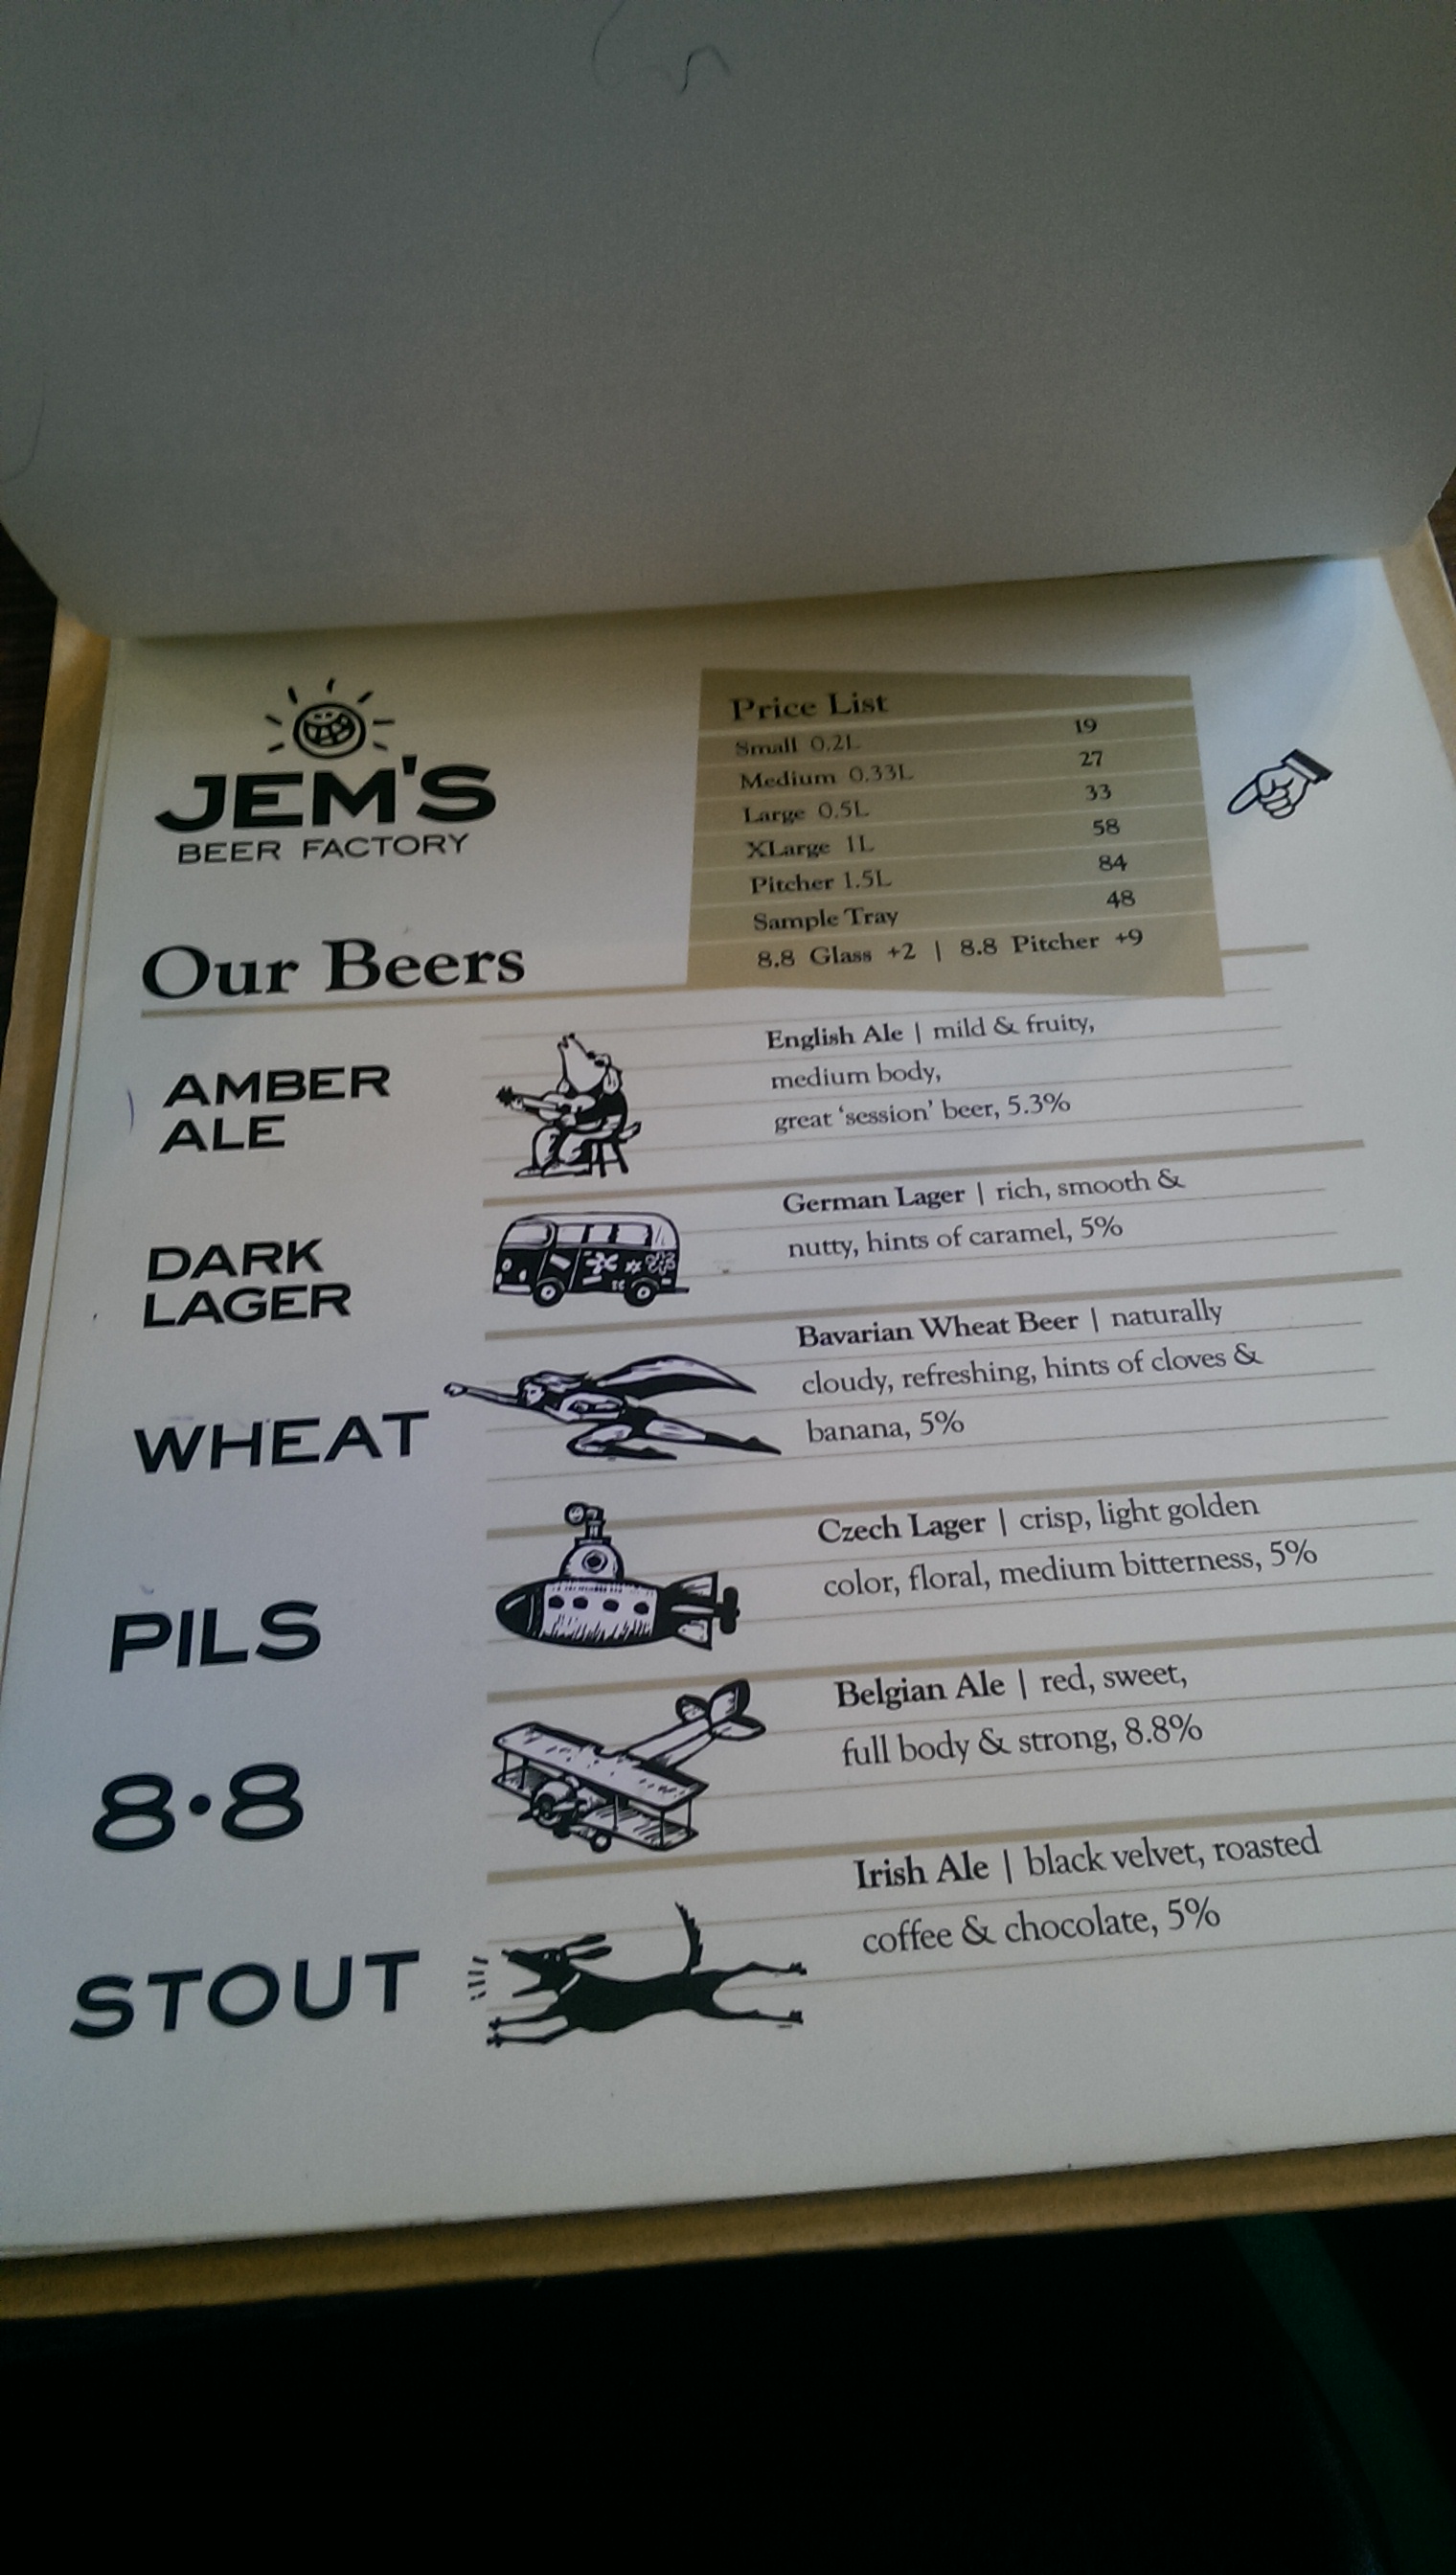 JEM'S
BEER FACTORY
Price List
Small 0.2L 19
Medium 0.33L 27
Large 0.5L 33
XLarge 1L 58
Pitcher 1.5L 84
Sample Tray 48
8.8 Glass +2 | 8.8 Pitcher +9
Our Beers
AMBER
ALE
English Ale | mild & fruity,
medium body,
great ‘session’ beer, 5.3%
DARK
LAGER
German Lager | rich, smooth &
nutty, hints of caramel, 5%
WHEAT
Bavarian Wheat Beer | naturally
cloudy, refreshing, hints of cloves &
banana, 5%
PILS
Czech Lager | crisp, light golden
color, floral, medium bitterness, 5%
8·8
Belgian Ale | red, sweet,
full body & strong, 8.8%
STOUT
Irish Ale | black velvet, roasted
coffee & chocolate, 5%